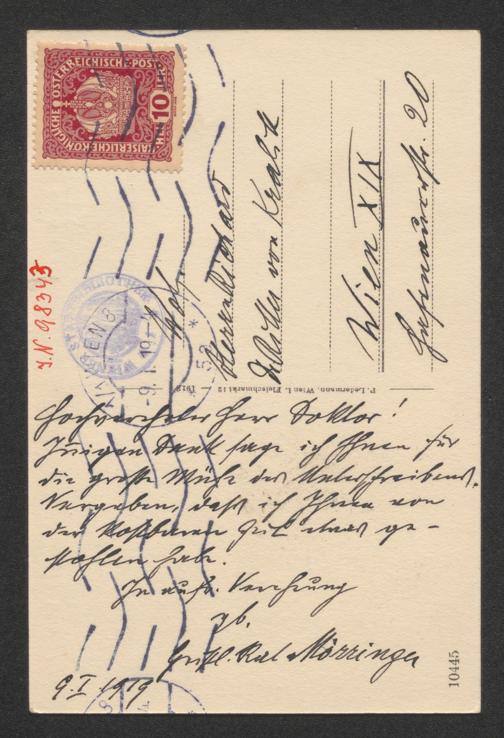 KAISERLICHE KÖNIGLICHE ÖSTERREICHISCHE POST
10
J.N. 98343
WIEN
-9.I.19-
Herrn Richard
von Kralik
Wien XIX
20
P. Ledermann, Wien I. Fleischmarkt 12 1913
Hochverehrter Herr Doktor!
Innigen Dank sage ich Ihnen für
die große Mühe des Unterschreibens.
Vergeben, daß ich Ihnen von
der kostbaren Zeit etwas ge-
stohlen habe.
In aufr. Verehrung
Mörringer
9.I 1919
10445